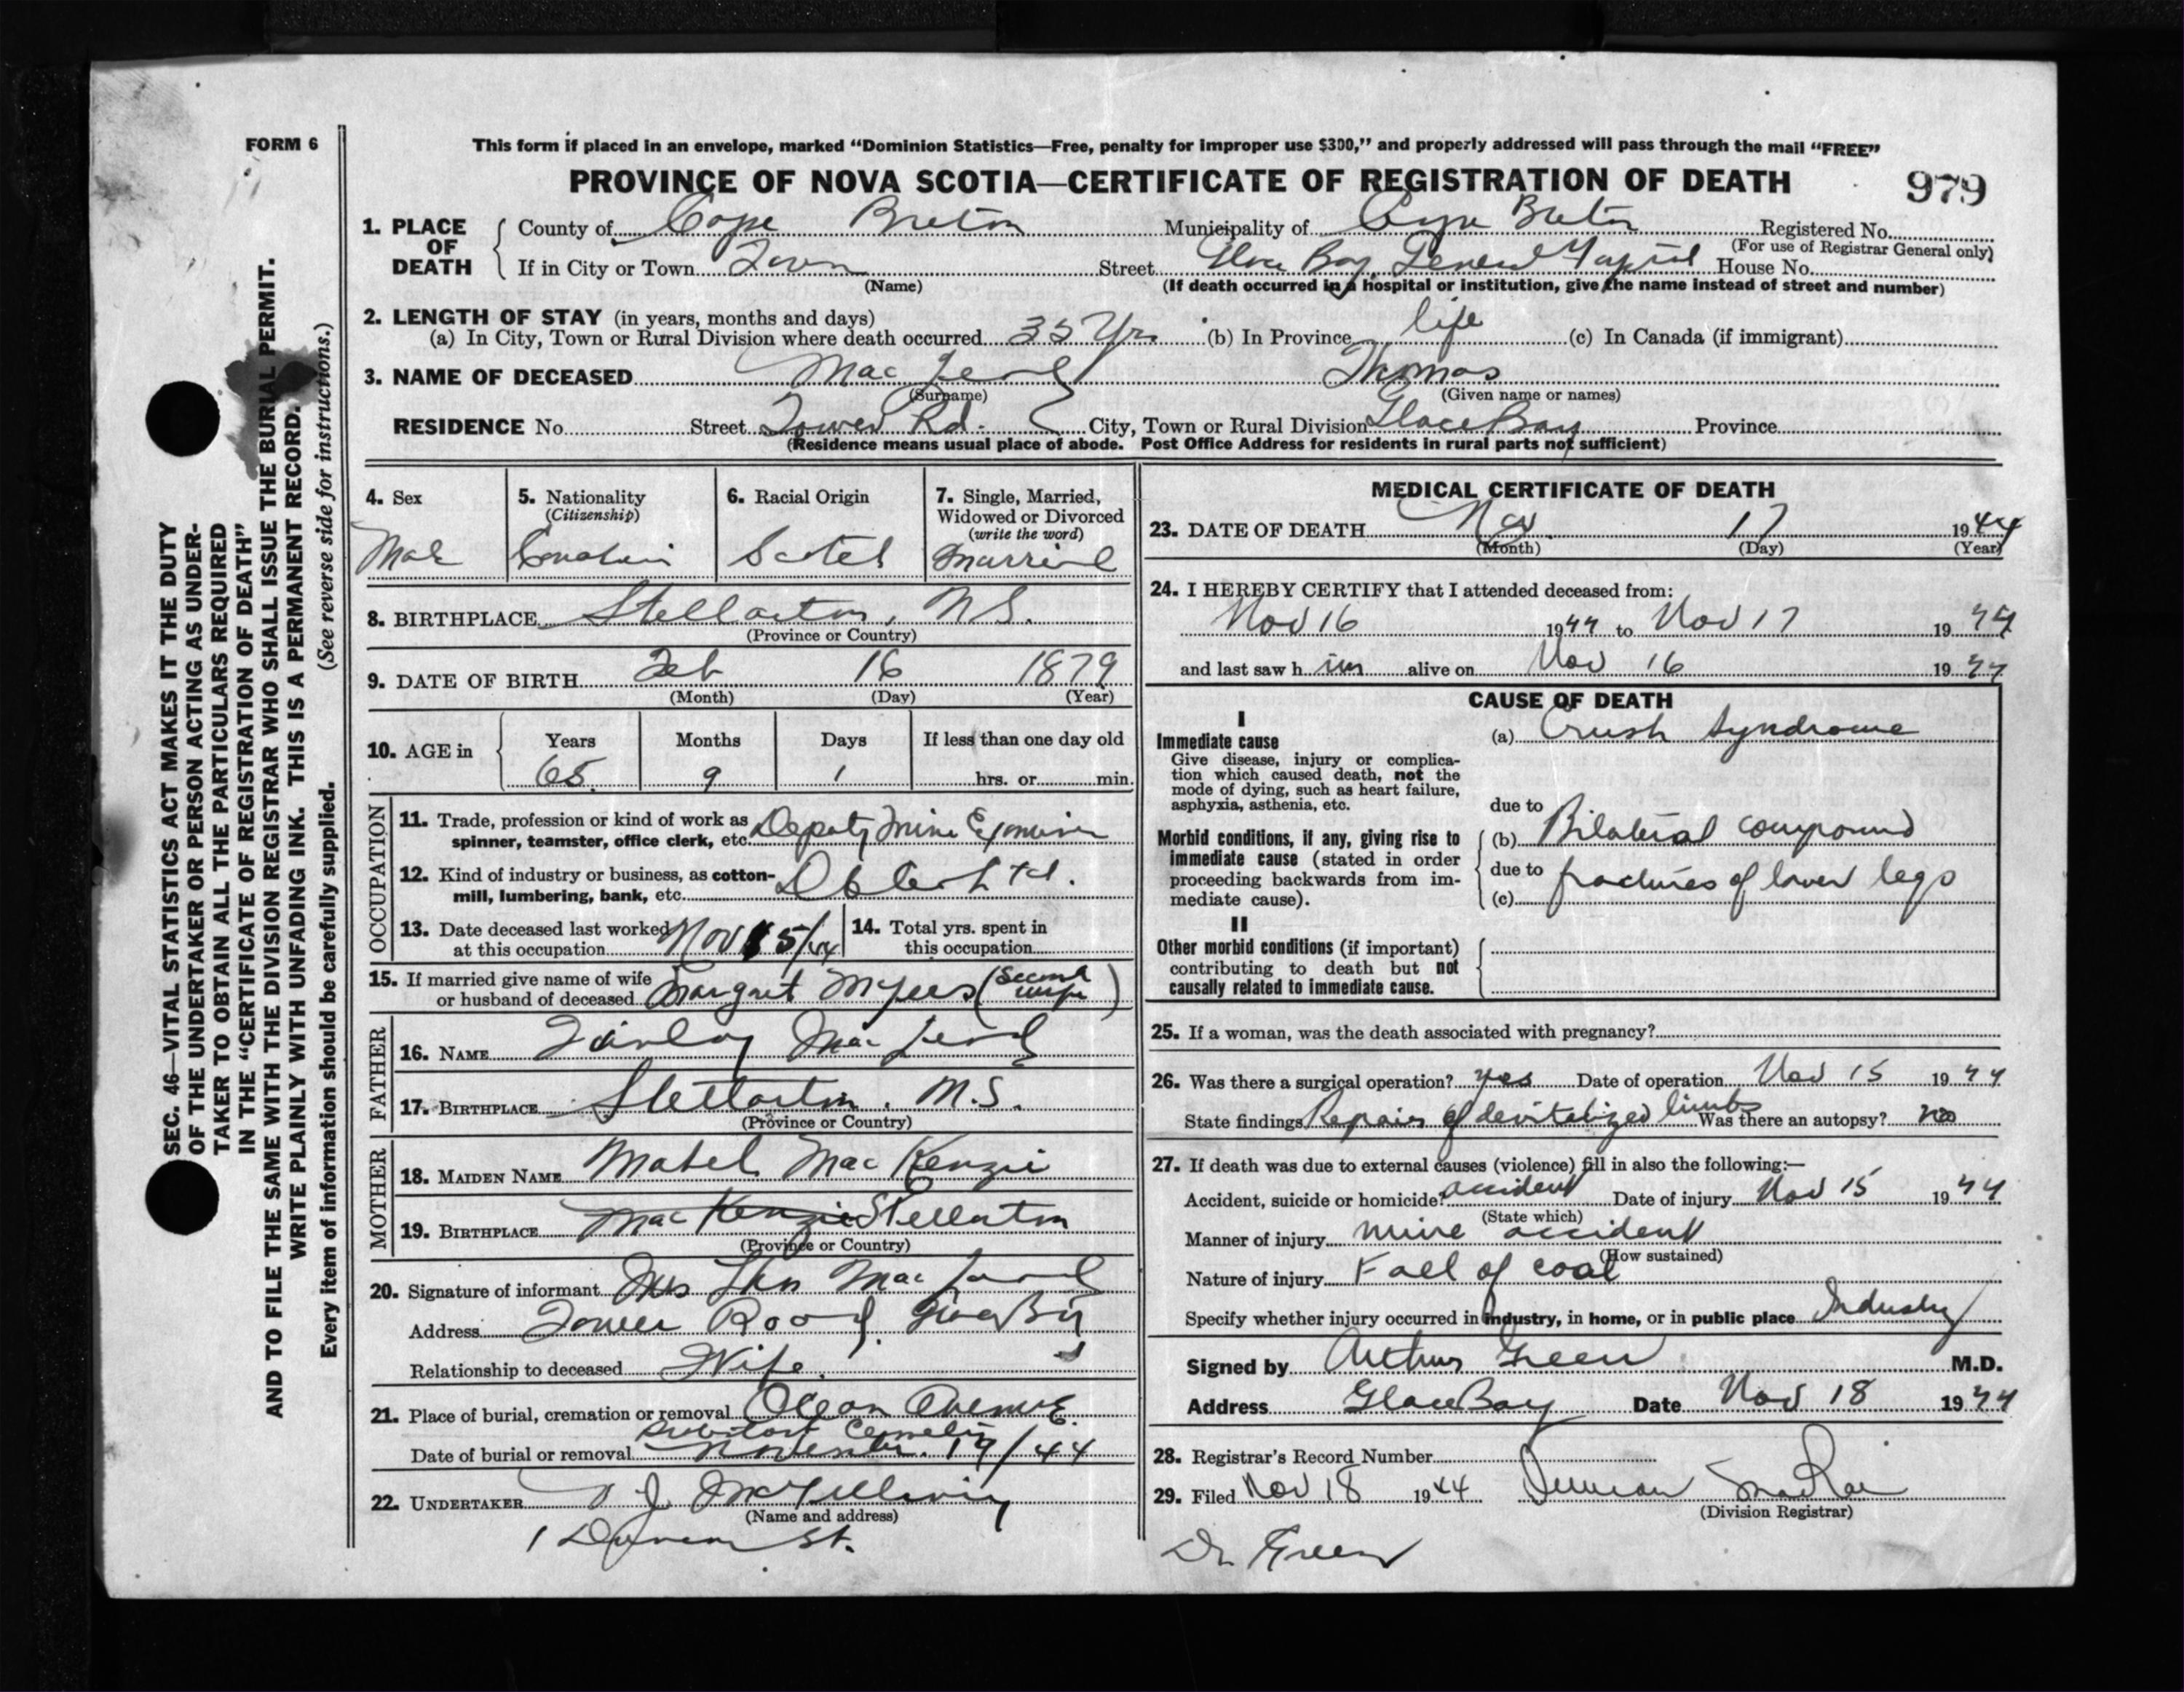 FORM 6
This form if placed in an envelope, marked “Dominion Statistics—Free, penalty for improper use $300,” and properly addressed will pass through the mail “FREE”
PROVINCE OF NOVA SCOTIA—CERTIFICATE OF REGISTRATION OF DEATH
979
1. PLACE OF DEATH
County of Cape Breton Municipality of Cape Breton Registered No.
(For use of Registrar General only)
If in City or Town Town Street Glace Bay General House No.
(Name) (If death occurred in a hospital or institution, give the name instead of street and number)
2. LENGTH OF STAY (in years, months and days)
(a) In City, Town or Rural Division where death occurred 35 Yrs (b) In Province life (c) In Canada (if immigrant)
3. NAME OF DECEASED MacLeod Thomas
(Surname) (Given name or names)
RESIDENCE No. Street Tower Rd. City, Town or Rural Division Glace Bay Province
(Residence means usual place of abode. Post Office Address for residents in rural parts not sufficient)
4. Sex
Male
5. Nationality
(Citizenship)
Canadian
6. Racial Origin
Scotch
7. Single, Married,
Widowed or Divorced
(write the word)
Married
8. BIRTHPLACE Stellarton, N.S.
(Province or Country)
9. DATE OF BIRTH Feb 16 1879
(Month) (Day) (Year)
10. AGE in
Years Months Days If less than one day old
65 9 1 hrs. or min.
OCCUPATION
11. Trade, profession or kind of work as
spinner, teamster, office clerk, etc. Deputy Mine Examiner
12. Kind of industry or business, as cotton-
mill, lumbering, bank, etc.
13. Date deceased last worked
at this occupation Nov 15/44
14. Total yrs. spent in
this occupation
15. If married give name of wife
or husband of deceased Margret Myers (Second wife)
FATHER
16. NAME Finlay MacLeod
17. BIRTHPLACE Stellarton. N.S.
(Province or Country)
MOTHER
18. MAIDEN NAME Mabel MacKenzie
19. BIRTHPLACE MacKenzie Stellarton
(Province or Country)
20. Signature of informant Mrs Thos MacLeod
Address Tower Road, Glace Bay
Relationship to deceased Wife.
21. Place of burial, cremation or removal Ocean Avenue
Cemetery
Date of burial or removal November 19/44
22. UNDERTAKER
(Name and address)
St.
MEDICAL CERTIFICATE OF DEATH
23. DATE OF DEATH Nov 17 1944
(Month) (Day) (Year)
24. I HEREBY CERTIFY that I attended deceased from:
Nov 16 1944 to Nov 17 1944
and last saw him alive on Nov 16 1944
CAUSE OF DEATH
I
Immediate cause
Give disease, injury or complica-
tion which caused death, not the
mode of dying, such as heart failure,
asphyxia, asthenia, etc.
(a) Crush Syndrome
due to
Morbid conditions, if any, giving rise to
immediate cause (stated in order
proceeding backwards from im-
mediate cause).
(b) Bilateral compound
due to fractures of lower legs
(c)
II
Other morbid conditions (if important)
contributing to death but not
causally related to immediate cause.
25. If a woman, was the death associated with pregnancy?
26. Was there a surgical operation? yes Date of operation Nov 15 1944
State findings Repair of devitalized limbs Was there an autopsy? no
27. If death was due to external causes (violence) fill in also the following:—
Accident, suicide or homicide? accident Date of injury Nov 15 1944
(State which)
Manner of injury mine accident
(How sustained)
Nature of injury Fall of coal
Specify whether injury occurred in industry, in home, or in public place Industry
Signed by Arthur Green M.D.
Address Glace Bay Date Nov 18 1944
28. Registrar's Record Number
29. Filed Nov 18 1944 Duncan MacRae
(Division Registrar)
Dr Green
SEC. 46—VITAL STATISTICS ACT MAKES IT THE DUTY
OF THE UNDERTAKER OR PERSON ACTING AS UNDER-
TAKER TO OBTAIN ALL THE PARTICULARS REQUIRED
IN THE “CERTIFICATE OF REGISTRATION OF DEATH”
AND TO FILE THE SAME WITH THE DIVISION REGISTRAR WHO SHALL ISSUE THE BURIAL PERMIT.
WRITE PLAINLY WITH UNFADING INK. THIS IS A PERMANENT RECORD.
Every item of information should be carefully supplied. (See reverse side for instructions.)